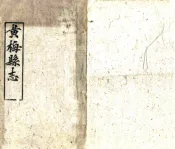 黄梅縣志
一